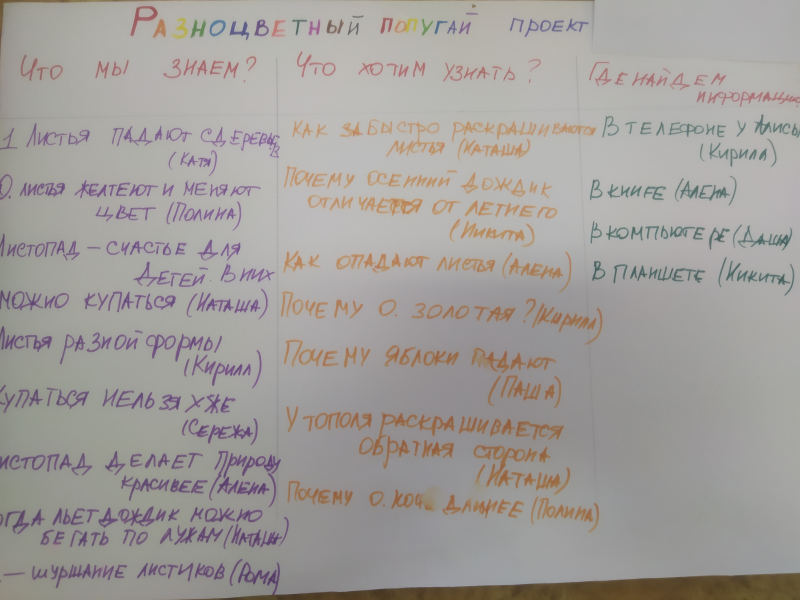 Разноцветный попугай проект
Что мы знаем?
1 Листья падают с деревьев
(Катя)
О. листья желтеют и меняют
цвет (Полина)
Листопад – счастье для
детей. В них
можно купаться (Наташа)
Листья разной формы
(Кирилл)
Купаться нельзя уже
(Сережа)
Листопад делает природу
красивее (Алена)
Когда льет дождик можно
бегать по лужам (Наташа)
– шуршание листиков (Рома)
Что хотим узнать?
Как забыстро раскрашиваются
листья (Наташа)
Почему осенний дождик
отличается от летнего
(Никита)
Как опадают листья (Алена)
Почему О. золотая? (Кирилл)
Почему яблоки падают
(Паша)
У тополя раскрашивается
обратная сторона
(Наташа)
Почему О. длинее (Полина)
Где найдем
информацию
В телефоне у Алисы
(Кирилл)
В книге (Алена)
В компьютере (Даша)
В планшете (Никита)